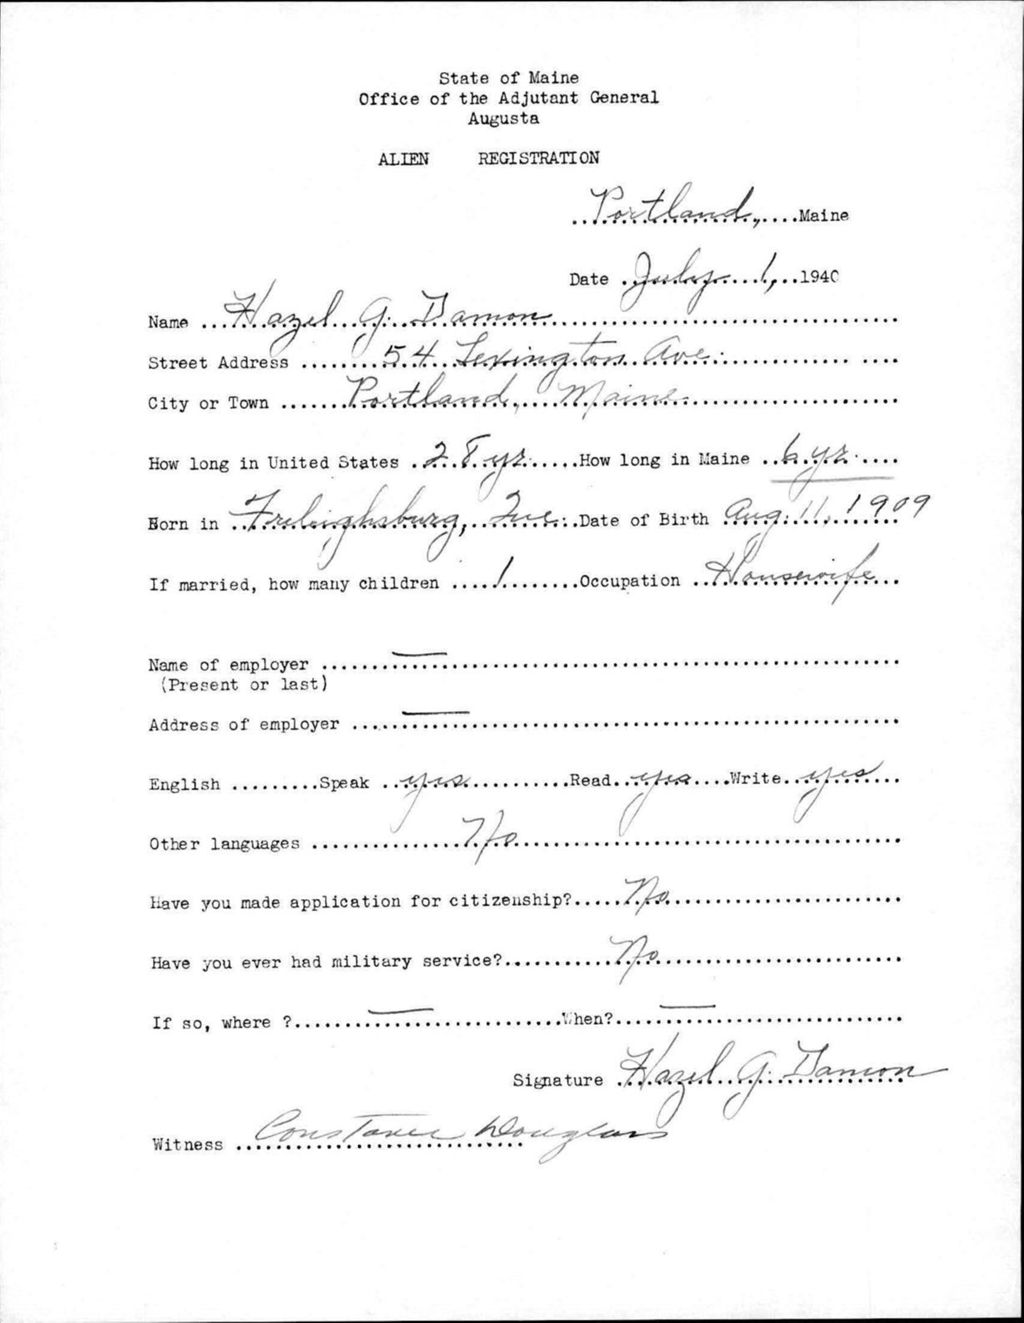 State of Maine
Office of the Adjutant General
Augusta
ALIEN REGISTRATION
Portland, Maine
Date July 1, 1940
Name Hazel G. Damon
Street Address 54 Lexington Ave.
City or Town Portland, Maine
How long in United States 28 yrs. How long in Maine 6 yrs.
Born in Freleighsburg, Que. Date of Birth Aug. 11, 1909
If married, how many children 1 Occupation Housewife
Name of employer —
(Present or last)
Address of employer —
English Speak yes Read yes Write yes
Other languages No
Have you made application for citizenship? No
Have you ever had military service? No
If so, where ? — When? —
Signature Hazel G. Damon
Witness Constance Douglass